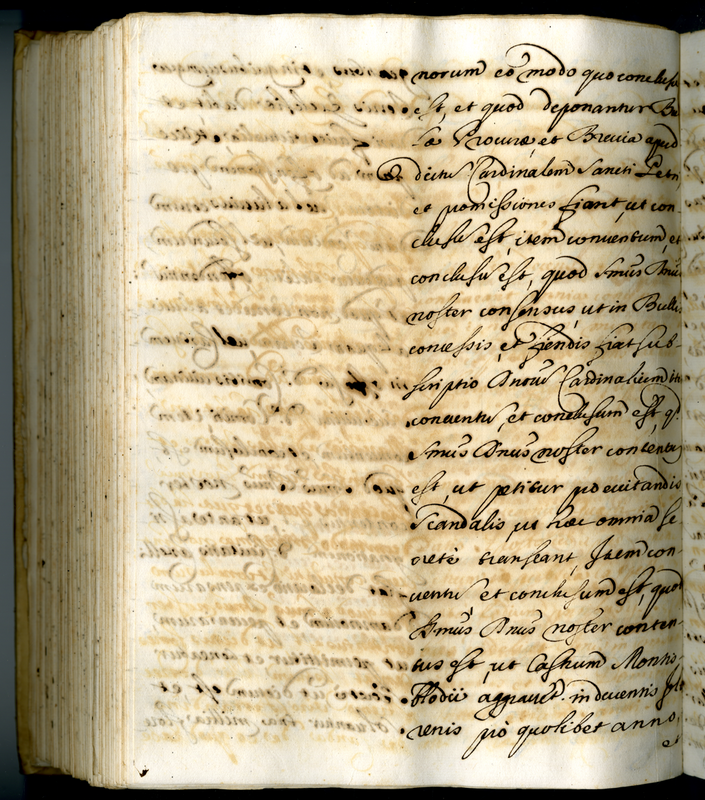 norum eõ modo quo conclusũ
est, et quod deponantur Bul
læ Procuræ, et Brevia apud
dictũ Cardinalem Sancti Petri,
et promissiones fiant, ut con-
clusũ est, item conventum, et
conclusũ est, quod Smus Dnus
noster consensus, ut in Bullis
concessis, et fiendis fiat sub-
scriptio Dnorũ Cardinalium
conventũ, et conclusum est, q.
Smus Dnus noster contentus
est, ut petitur pro evitandis
Scandalis, ut hæc omnia se
cretè transeant, Item con-
ventũ, et conclusum est, quod
Smus Dnus noster conten-
tus est, ut Castrum Montis
Flodii aggravet. in ducentis flo
renis prò quolibet anno,
et